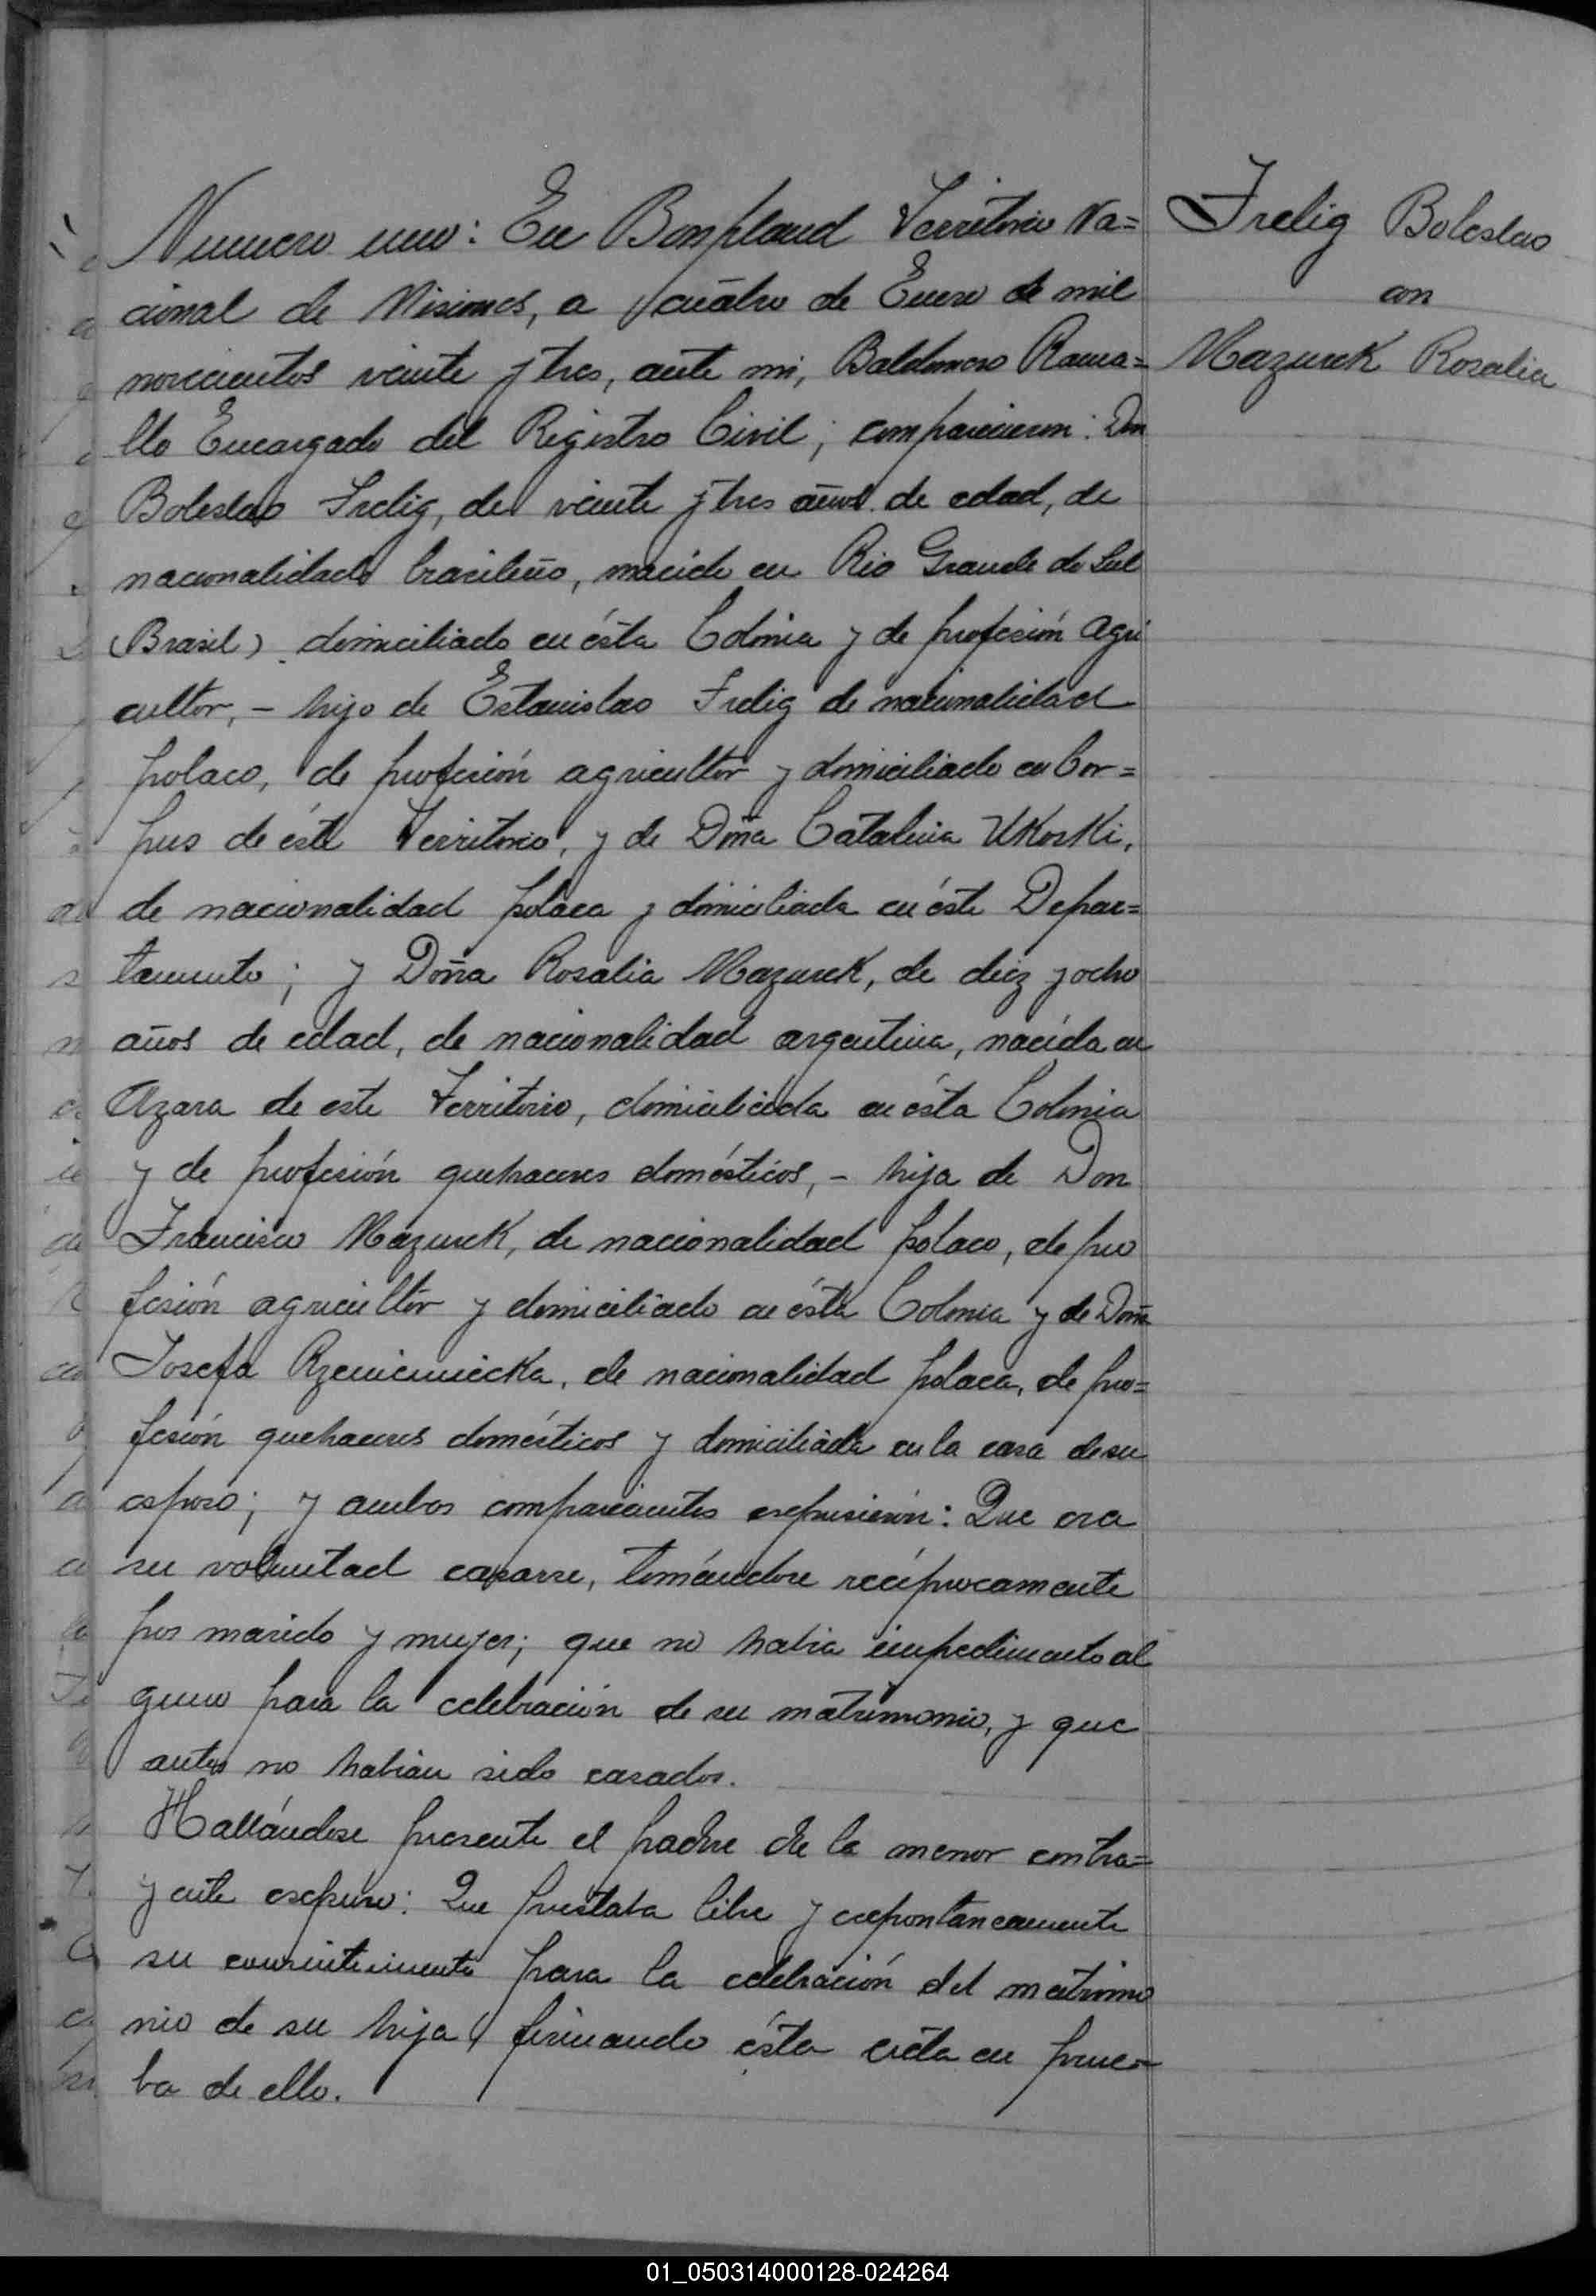 Numero uno: En Bonpland Territorio Na=
cional de Misiones, a cuatro de Enero de mil
novecientos veinte y tres, ante mi, Baldomero Rama=
llo Encargado del Registro Civil; comparecieron: Don
Boleslao Frelig, de veinte y tres años de edad, de
nacionalidad brasileño, nacido en Rio Grande do Sul
(Brasil) domiciliado en ésta Colonia y de profesión agri
cultor, - hijo de Estanislao Frelig de nacionalidad
polaco, de profesión agricultor y domiciliado en Cor=
pus de éste Territorio, y de Doña Catalina Ukoski,
de nacionalidad polaca y domiciliada en éste Depar=
tamento; y Doña Rosalia Mazurek, de diez y ocho
años de edad, de nacionalidad argentina, nacida en
Azara de este Territorio, domiciliada en ésta Colonia
y de profesión quehaceres domésticos, - hija de Don
Francisco Mazurek, de nacionalidad polaco, de pro
fesión agricultor y domiciliado en ésta Colonia y de Doña
Josefa, de nacionalidad polaca, de pro=
fesión quehaceres domésticos y domiciliada en la casa de su
esposo; y ambos comparecientes espusieron: Que era
su voluntad casarse, tomándose recíprocamente
por marido y mujer; que no habia impedimento al
guno para la celebración de su matrimonio, y que
antes no habian sido casados.
Hallándose presente el padre de la menor contra=
yente espuso: Que prestaba libre y espontaneamente
su consentimiento para la celebración del matrimo
nio de su hija firmando ésta acta en prue=
ba de ello.
Frelig Boleslao
con
Mazurek Rosalia
01_050314000128-024264